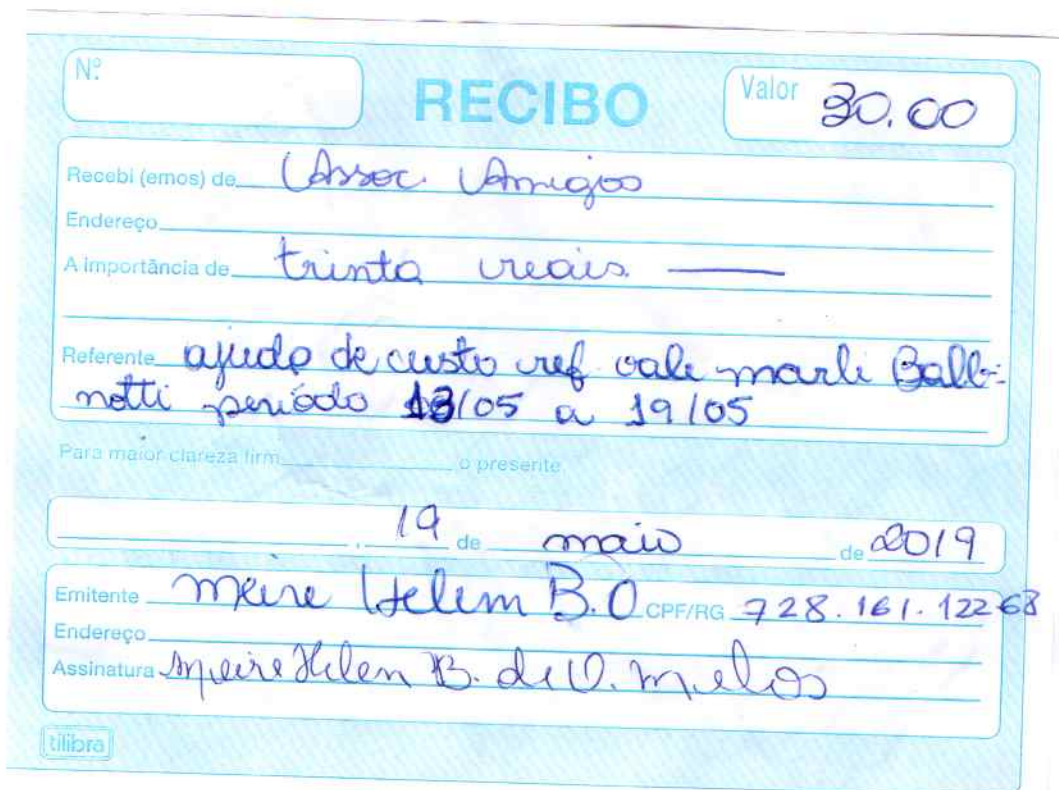 Nº
RECIBO
Valor 30.00
Recebi (emos) de Assoc. Amigos
Endereço
A importância de trinta reais
Referente ajuda de custo ref vale marli Balbi-
notti período 13/05 a 19/05
Para maior clareza firm o presente
, 19 de maio de 2019
Emitente Meire Helem B. O CPF/RG 728.161.122 68
Endereço
Assinatura Meire Helen B. de O. Melos
tilibra